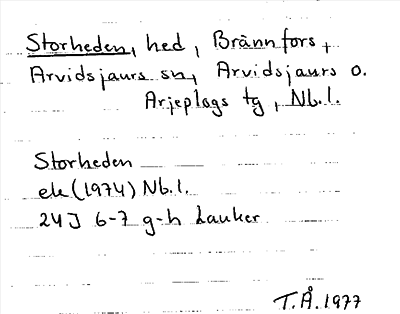 Storheden, hed, Brännfors,
Arvidsjaurs sn, Arvidsjaurs o.
Arjeplogs tg, Nb.l.
Storheden
ek (1974) Nb.l.
24J 6-7 g-h Lauker
T.Å. 1977